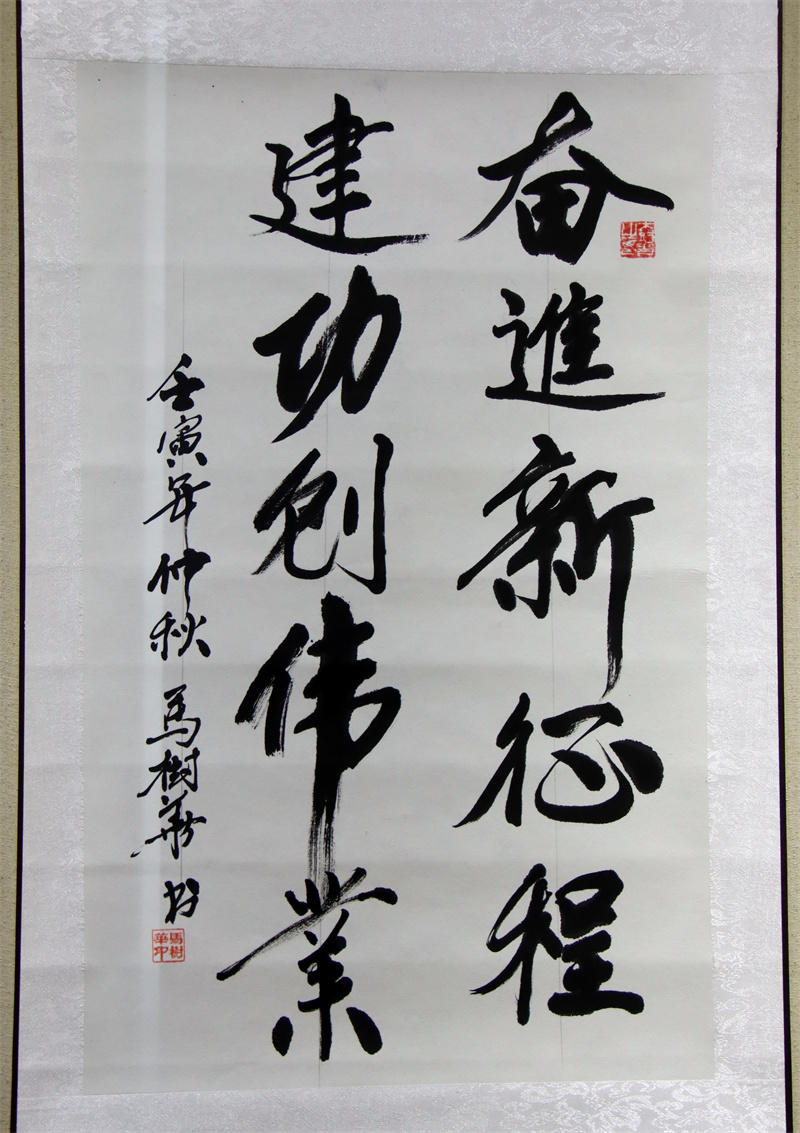 奋進新征程
建功创伟業
壬寅年仲秋 馬樹華书
馬樹華印